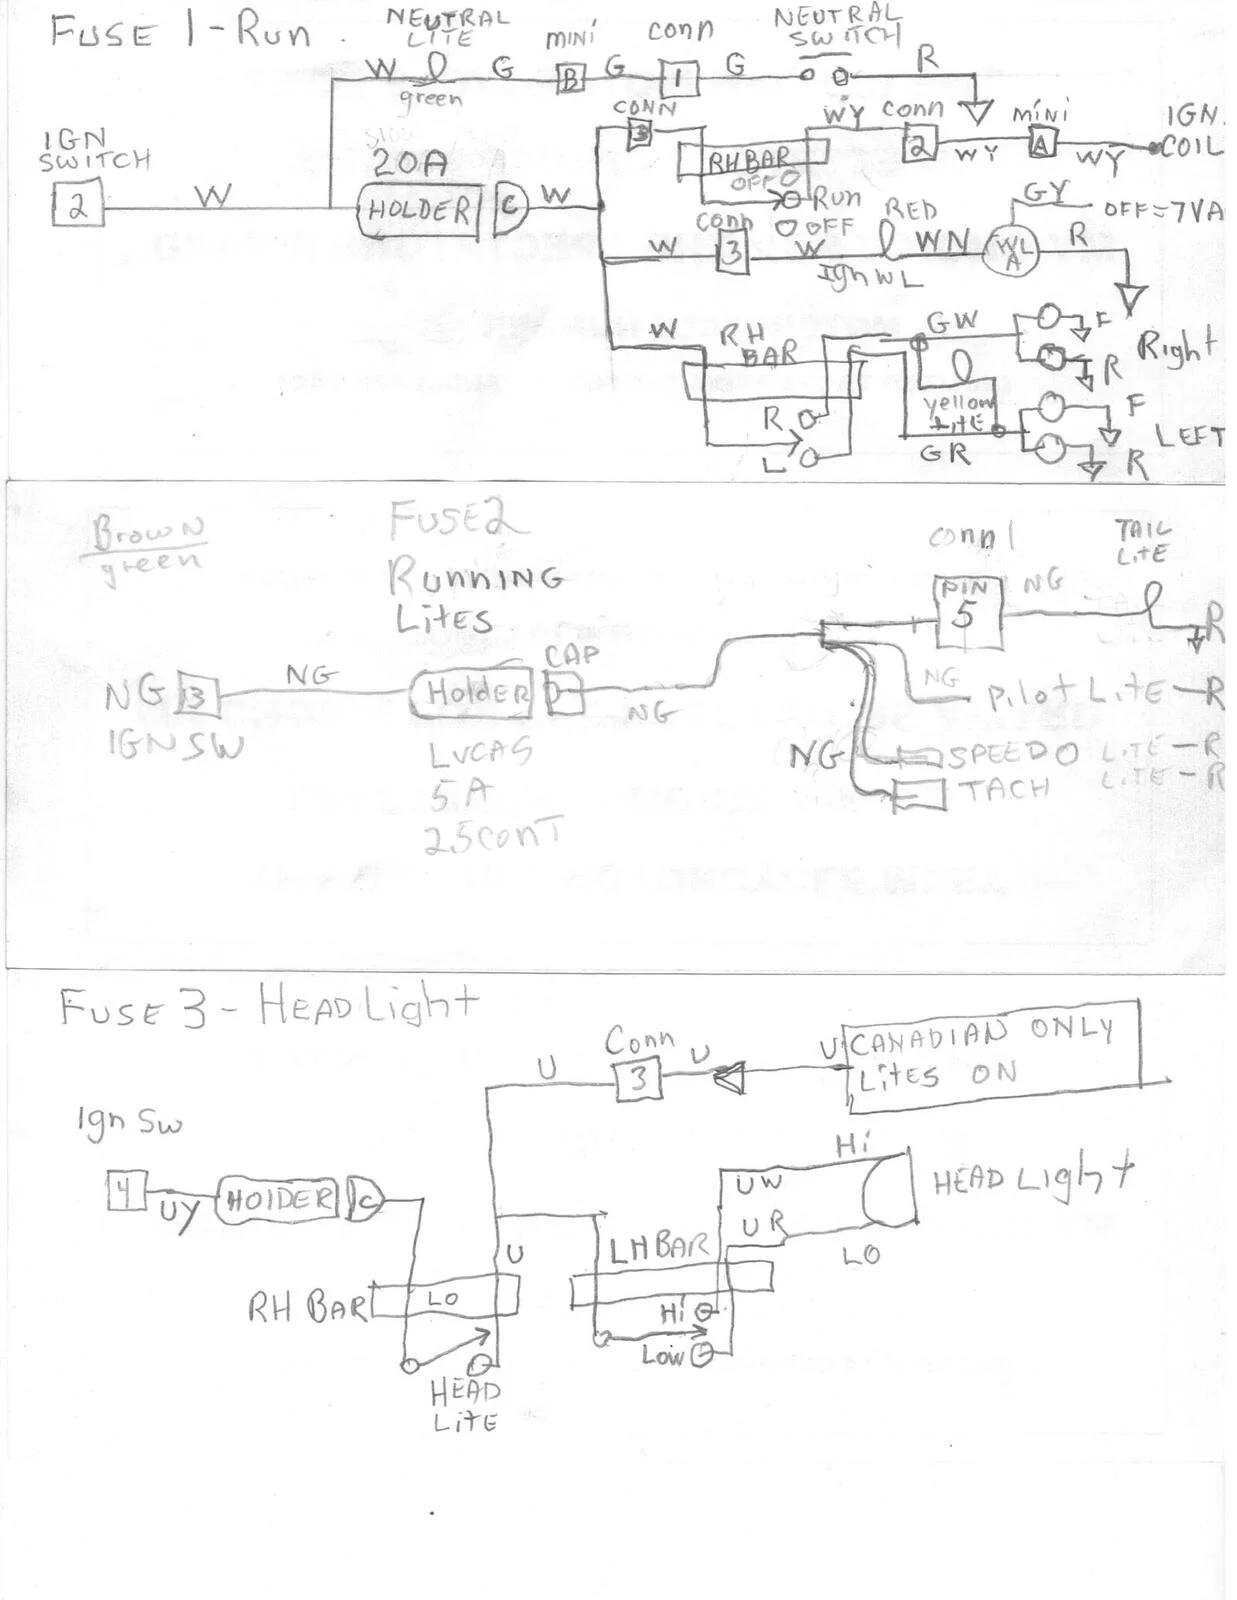 FUSE 1-RUN
NEUTRAL
LITE
W
G
green
MINI
B
G
CONN
1
G
NEUTRAL
SWITCH
R
IGN
SWITCH
2
W
20A
HOLDER
C
W
CONN
3
RH BAR
OFF
Run
OFF
WY
CONN
2
WY
MINI
A
WY
IGN.
COIL
W
CONN
3
W
Ign WL
RED
WN
WL
A
GY
OFF=7VA
R
W
RH
BAR
R
L
GW
yellow
LITE
GR
F
R
Right
F
R
LEFT
Brown
green
FUSE 2
RUNNING
LITES
NG 3
IGN SW
NG
HOLDER
CAP
D
NG
LUCAS
5A
25CONT
CONN 1
PIN
5
NG
TAIL
LITE
R
NG
PILOT LITE-R
NG
SPEEDO LITE-R
TACH LITE-R
FUSE 3 - HEAD Light
U
Conn
3
U
U
CANADIAN ONLY
LITES ON
Ign Sw
4
UY
HOLDER
C
RH BAR
LO
U
HEAD
LITE
LH BAR
Hi
Low
UW
Hi
UR
LO
HEAD Light